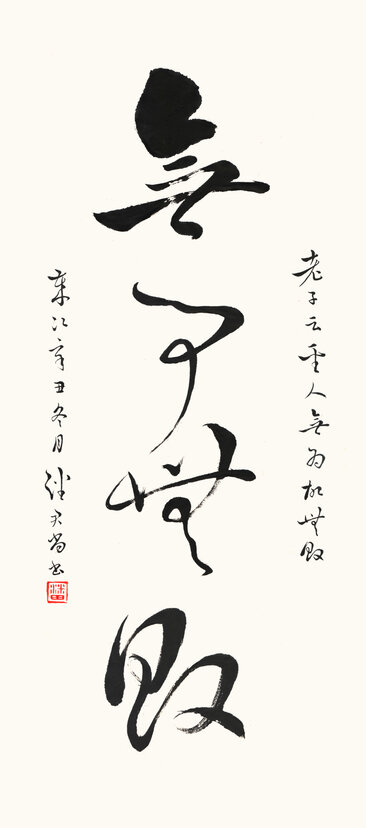 無為無敗
老子云聖人無為故無敗
歲次辛丑冬月書